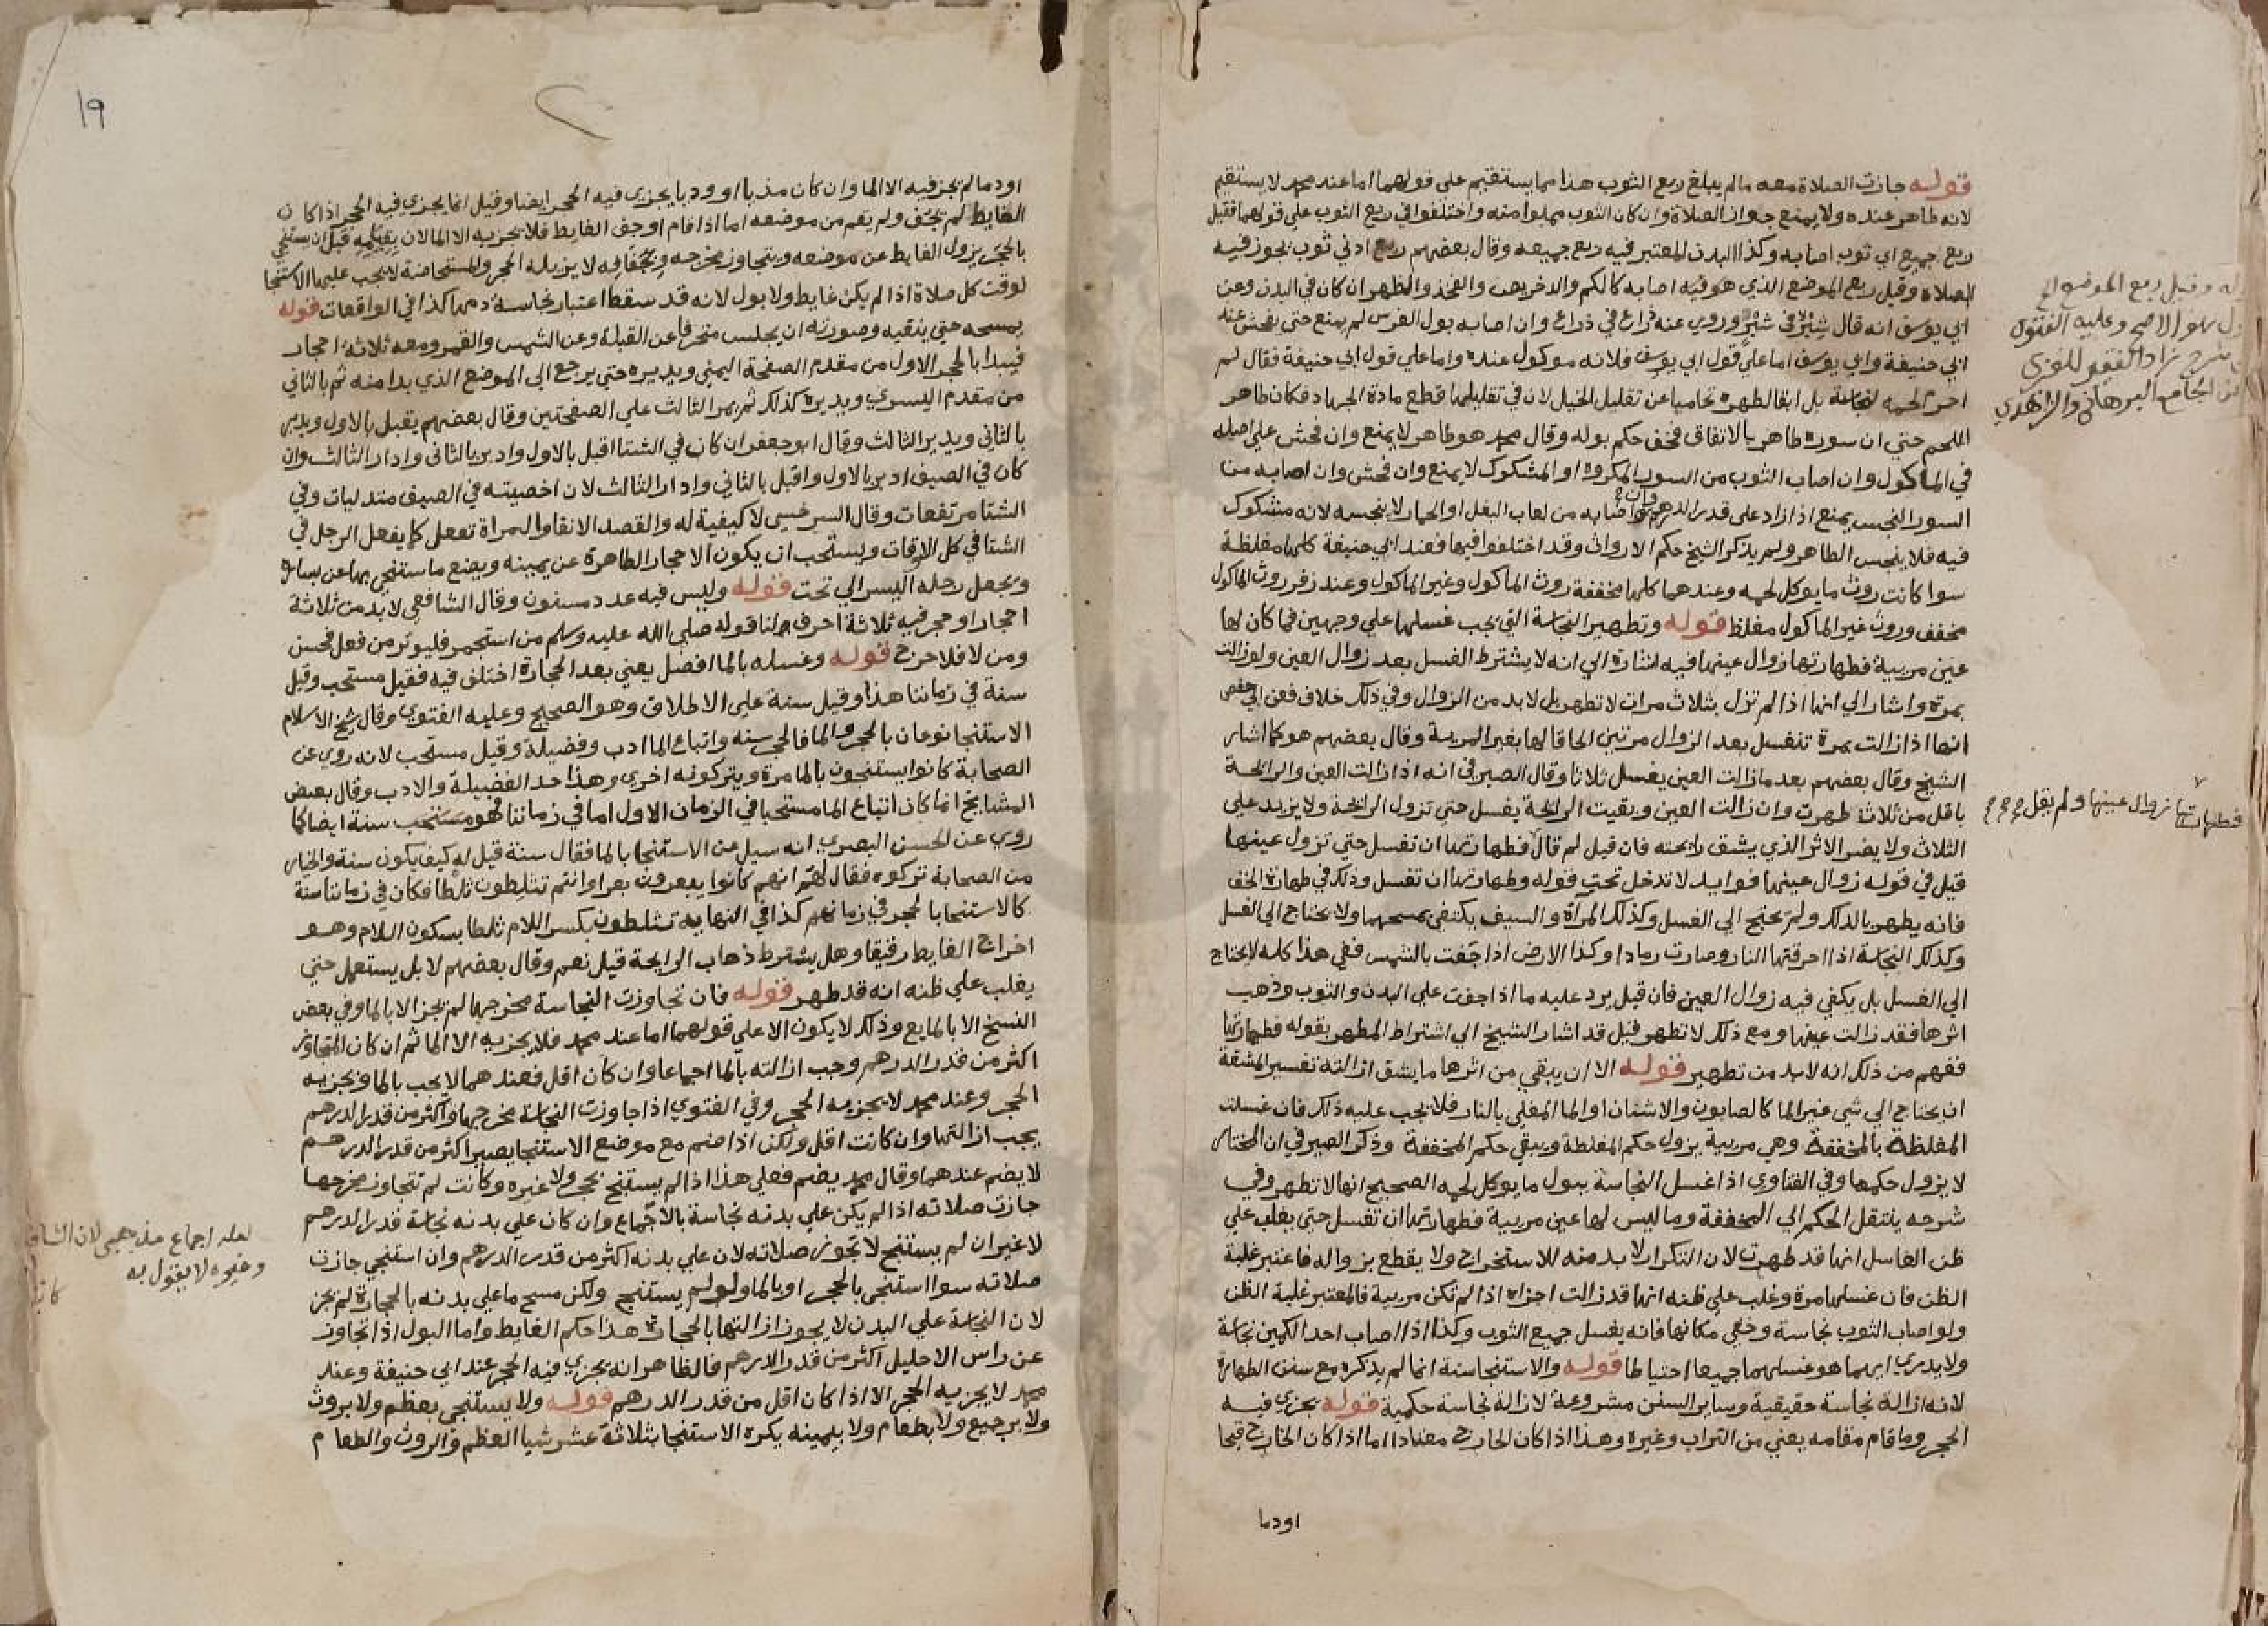 قوله جازت الصلاة معه مالم يبلغ ربع الثوب هذا مما يستقيم على قولهما اما عند محمد لا يستقيم
لانه طاهر عنده ولا يمنع جواز الصلاة وان كان الثوب مملوا منه واختلفوا في ربع الثوب علي قولهما فقيل
ربع جميع اي ثوب اصابه وكذا البدن المعتبر فيه ربع جميعه وقال بعضهم ربع ادني ثوب تجوز فيه
الصلاة وقيل ربع الموضع الذي هو فيه اصابه كالكم والدخريص والفخذ والظهر ان كان في البدن وعن
ابي يوسف انه قال شبر في شبر وروي عنه ذراع في ذراع وان اصابه بول الفرس لم يمنع حتى يفحش عند
ابي حنيفة وابي يوسف اما علي قول ابي يوسف فلانه موكول عنده واما علي قول ابي حنيفة فقال لم
احرم لحمه لنجاسة بل ابقا لظهره تحاميا عن تقليل الخيل لان في تقليلها قطع مادة الجهاد فكان طاهر
اللحم حتي ان سوره طاهر بالاتفاق فخفف حكم بوله وقال محمد هو طاهر لا يمنع وان فحش علي اصله
في الماكول وان اصاب الثوب من السور المكروه او المشكوك لا يمنع وان فحش وان اصابه من
السور النجس يمنع اذا زاد على قدر الدرهم وان اصابه من لعاب البغل او الحمار لا ينجسه لانه مشكوك
فيه فلا ينجس الطاهر ولم يذكر الشيخ حكم الارواث وقد اختلفوا فيها فعند ابي حنيفة كلها مغلظة
سوا كانت روث ما يوكل لحمه وعندهما كلها مخففة روث الماكول وغير الماكول وعند زفر روث الماكول
مخفف وروث غير الماكول مغلظ قوله وتطهير النجاسة التي يجب غسلها علي وجهين فما كان لها
عين مربية فطهارتها زوال عينها فيه اشارة الي انه لا يشترط الغسل بعد زوال العين ولو زالت
بمرة واشار الي انها اذا لم تزل بثلاث مرات لا تطهر بل لابد من الزوال وفي ذلك خلاف فعن ابي حفص
انها اذا زالت بمرة تغسل بعد الزوال مرتين الحاقا لها بغير المربية وقال بعضهم هو كما اشار
الشيخ وقال بعضهم بعد ما زالت العين يغسل ثلاثا وقال الصيرفي انه اذا زالت العين والرائحة
باقل من ثلاث طهرت وان زالت العين وبقيت الرائحة يغسل حتى تزول الرائحة ولا يزيد على
الثلاث ولا يضر الاثر الذي يشق رايحته فان قيل لم قال فطهارتها ان تغسل حتي تزول عينها
قيل في قوله زوال عينها فوايد لا تدخل تحت قوله وطهارتها ان تغسل وذلك في طهارة الخف
فانه يطهر بالدلك ولم يحتج الي الغسل وكذلك المرآة والسيف يكتفي بمسحهما ولا يحتاج الي الغسل
وكذلك النجاسة اذا احرقتها النار وصارت رمادا وكذا الارض اذا جفت بالشمس ففي هذا كله لا يحتاج
الي الغسل بل يكفي فيه زوال العين فان قيل يرد عليه ما اذا جفت علي البدن والثوب وذهب
اثرها فقد زالت عينها ومع ذلك لا تطهر قيل قد اشار الشيخ الي اشتراط المطهر بقوله فطهارتها
ففهم من ذلك انه لابد من تطهير قوله الا ان يبقي من اثرها ما يشق ازالته تفسير المشقة
ان يحتاج الي شي غير الما كالصابون والاشنان او الما المغلي بالنار فلا يجب عليه ذلك فان غسلت
المغلظة بالمخففة وهي مربية يزول حكم المغلظة ويبقي حكم المخففة وذكر الصيرفي ان المختار
لا يزول حكمها وفي الفتاوي اذا غسل النجاسة ببول ما يوكل لحمه الصحيح انها لا تطهر وفي
شرحه ينتقل الحكم الي المخففة وما ليس لها عين مربية فطهارتها ان تغسل حتى يغلب علي
ظن الغاسل انها قد طهرت لان التكرار لابد منه للاستخراج ولا يقطع بزواله فاعتبر غلبة
الظن فان غسلها مرة وغلب علي ظنه انها قد زالت اجزاه اذا لم تكن مربية فالمعتبر غلبة الظن
ولو اصاب الثوب نجاسة وخفي مكانها فانه يغسل جميع الثوب وكذا اذا اصاب احد الكمين نجاسة
ولا يدري ايهما هو غسلهما جميعا احتياطا قوله والاستنجا سنة انما لم يذكره مع سنن الطهارة
لانه ازالة نجاسة حقيقية وساير السنن مشروعة لازالة نجاسة حكمية قوله يجزي فيه
الحجر وما قام مقامه يعني من التراب وغيره وهذا اذا كان الخارج معتادا اما اذا كان الخارج قيحا
اودما
وقيل ربع الموضع الخ
هو الاصح وعليه الفتوى
شرح زاد الفقير للغزي
الجامع البرهاني والزاهدي
فطهارتها زوال عينها ولم يقل
١٩
اودما لم يجز فيه الا الما وان كان مذيا او وديا يجزي فيه الحجر ايضا وقيل انما يجزي فيه الحجر اذا كان
الغايط لم يجف ولم يقم من موضعه اما اذا قام او جف الغايط فلا يجزيه الا الما لان بقيامه قبل ان يستنجي
بالحجر يزول الغايط عن موضعه ويتجاوز مخرجه وبجفافه لا يزيله الحجر والمستحاضة لا يجب عليها الاستنجا
لوقت كل صلاة اذا لم يكن غايط ولا بول لانه قد سقط اعتبار نجاسة دمها كذا في الواقعات قوله
يمسحه حتى ينقيه وصورته ان يجلس منحرفا عن القبلة وعن الشمس والقمر ومعه ثلاثة احجار
فيبدا بالحجر الاول من مقدم الصفحة اليمنى ويديره حتى يرجع الى الموضع الذي بدا منه ثم بالثاني
من مقدم اليسري ويديره كذلك ثم يمر الثالث علي الصفحتين وقال بعضهم يقبل بالاول ويدبر
بالثاني ويدير الثالث وقال ابو جعفر ان كان في الشتا اقبل بالاول وادبر بالثاني وادار الثالث وان
كان في الصيف ادبر بالاول واقبل بالثاني وادار الثالث لان اخصيته في الصيف متدليات وفي
الشتا مرتفعات وقال السرخسي لا كيفية له والقصد الانقا والمراة تفعل كما يفعل الرجل في
الشتا في كل الاوقات ويستحب ان يكون الاحجار الطاهرة عن يمينه ويضع ما ستنجي بها عن يساره
ويجعل رجله اليسرالي تحت قوله وليس فيه عدد مسنون وقال الشافعي لابد من ثلاثة
احجار او حجر فيه ثلاثة احرف ولنا قوله صلى الله عليه وسلم من استجمر فليوتر من فعل فحسن
ومن لا فلا حرج قوله وغسله بالما افضل يعني بعد الحجارة اختلف فيه فقيل مستحب وقيل
سنة في زماننا هذا وقيل سنة علي الاطلاق وهو الصحيح وعليه الفتوي وقال شيخ الاسلام
الاستنجا نوعان بالحجر والما فالحجر سنه واتباع الما ادب وفضيلة وقيل مستحب لانه روي عن
الصحابة كانوا يستنجون بالما مرة ويتركونه اخري وهذا حد الفضيلة والادب وقال بعض
المشايخ انما كان اتباع الما مستحبا في الزمان الاول اما في زماننا فهو مستحب سنة ايضا كما
روي عن الحسن البصري انه سيل عن الاستنجا بالما فقال سنة قيل له كيف يكون سنة والخيار
من الصحابة تركوه فقال لهم انهم كانوا يبعرون بعرا وانتم تثلطون ثلطا فكان في زماننا سنة
كالاستنجا بالحجر في زمانهم كذا في النهايه تثلطون بكسر اللام ثلطا بسكون اللام وهو
اخراج الغايط رقيقا وهل يشترط ذهاب الرايحة قيل نعم وقال بعضهم لا بل يستعمل حتي
يغلب علي ظنه انه قد طهر قوله فان تجاوزت النجاسة مخرجها لم يجز الا بالما وفي بعض
النسخ الا بالمايع وذلك لا يكون الا علي قولهما اما عند محمد فلا يجزيه الا الما ثم ان كان المتجاوز
اكثر من قدر الدرهم وجب ازالته بالما اجماعا وان كان اقل فعندهما لا يجب بالما ويجزيه
الحجر وعند محمد لا يجزيه الحجر وفي الفتوي اذا جاوزت النجاسة مخرجها واكثر من قدر الدرهم
يجب ازالتها وان كانت اقل ولكن اذا ضم مع موضع الاستنجا يصير اكثر من قدر الدرهم
لا يضم عندهما وقال محمد يضم فعلي هذا اذا لم يستنج بحجر ولا غيره وكانت لم تتجاوز مخرجها
جازت صلاته اذا لم يكن علي بدنه نجاسة بالاجماع وان كان علي بدنه نجاسة قدر الدرهم
لا غير ان لم يستنج لا تجوز صلاته لان علي بدنه اكثر من قدر الدرهم وان استنجي جازت
صلاته سوا استنجي بالحجر او بالما ولو لم يستنج ولكن مسح ما علي بدنه بالحجارة لم يجز
لان النجاسة علي البدن لا يجوز ازالتها بالحجارة هذا حكم الغايط واما البول اذا تجاوز
عن راس الاحليل اكثر من قدر الدرهم فالظاهر انه يجزي فيه الحجر عند ابي حنيفة وعند
محمد لا يجزيه الحجر الا اذا كان اقل من قدر الدرهم قوله ولا يستنجي بعظم ولا بروث
ولا برجيع ولا بطعام ولا بيمينه يكره الاستنجا بثلاثة عشر شيا العظم والروث والطعام
لعله اجماع مذهبي لان الشافعي
وغيره لا يقول به